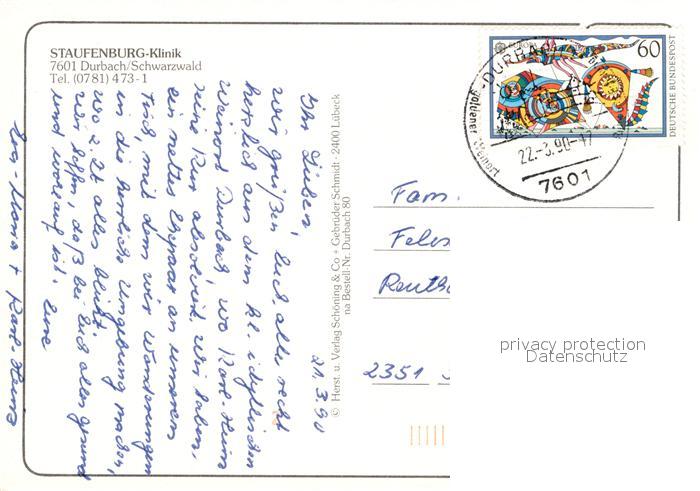 STAUFENBURG-Klinik
7601 Durbach/Schwarzwald
Tel. (0781) 473-1
21.3.90
Ihr Lieben,
wir grüßen Euch alle recht
herzlich aus dem kl. idyllischen
Weinort Durbach, wo Karl-Heinz
seine Kur absolviert. Wir haben
ein nettes Ehepaar an unserem
Tisch, mit dem wir Wanderungen
in die herrliche Umgebung machen,
wo z. Zt. alles blüht.
Wir hoffen, daß bei Euch alles gesund
und wohlauf ist. Eure
+ Karl-Heinz
© Herst. u. Verlag Schöning & Co + Gebrüder Schmidt · 2400 Lübeck
na Bestell-Nr. Durbach 80
EUROPA
60
DEUTSCHE BUNDESPOST
DURBACH
22.-3.90-17
7601
Fam.
2351
privacy protection
Datenschutz